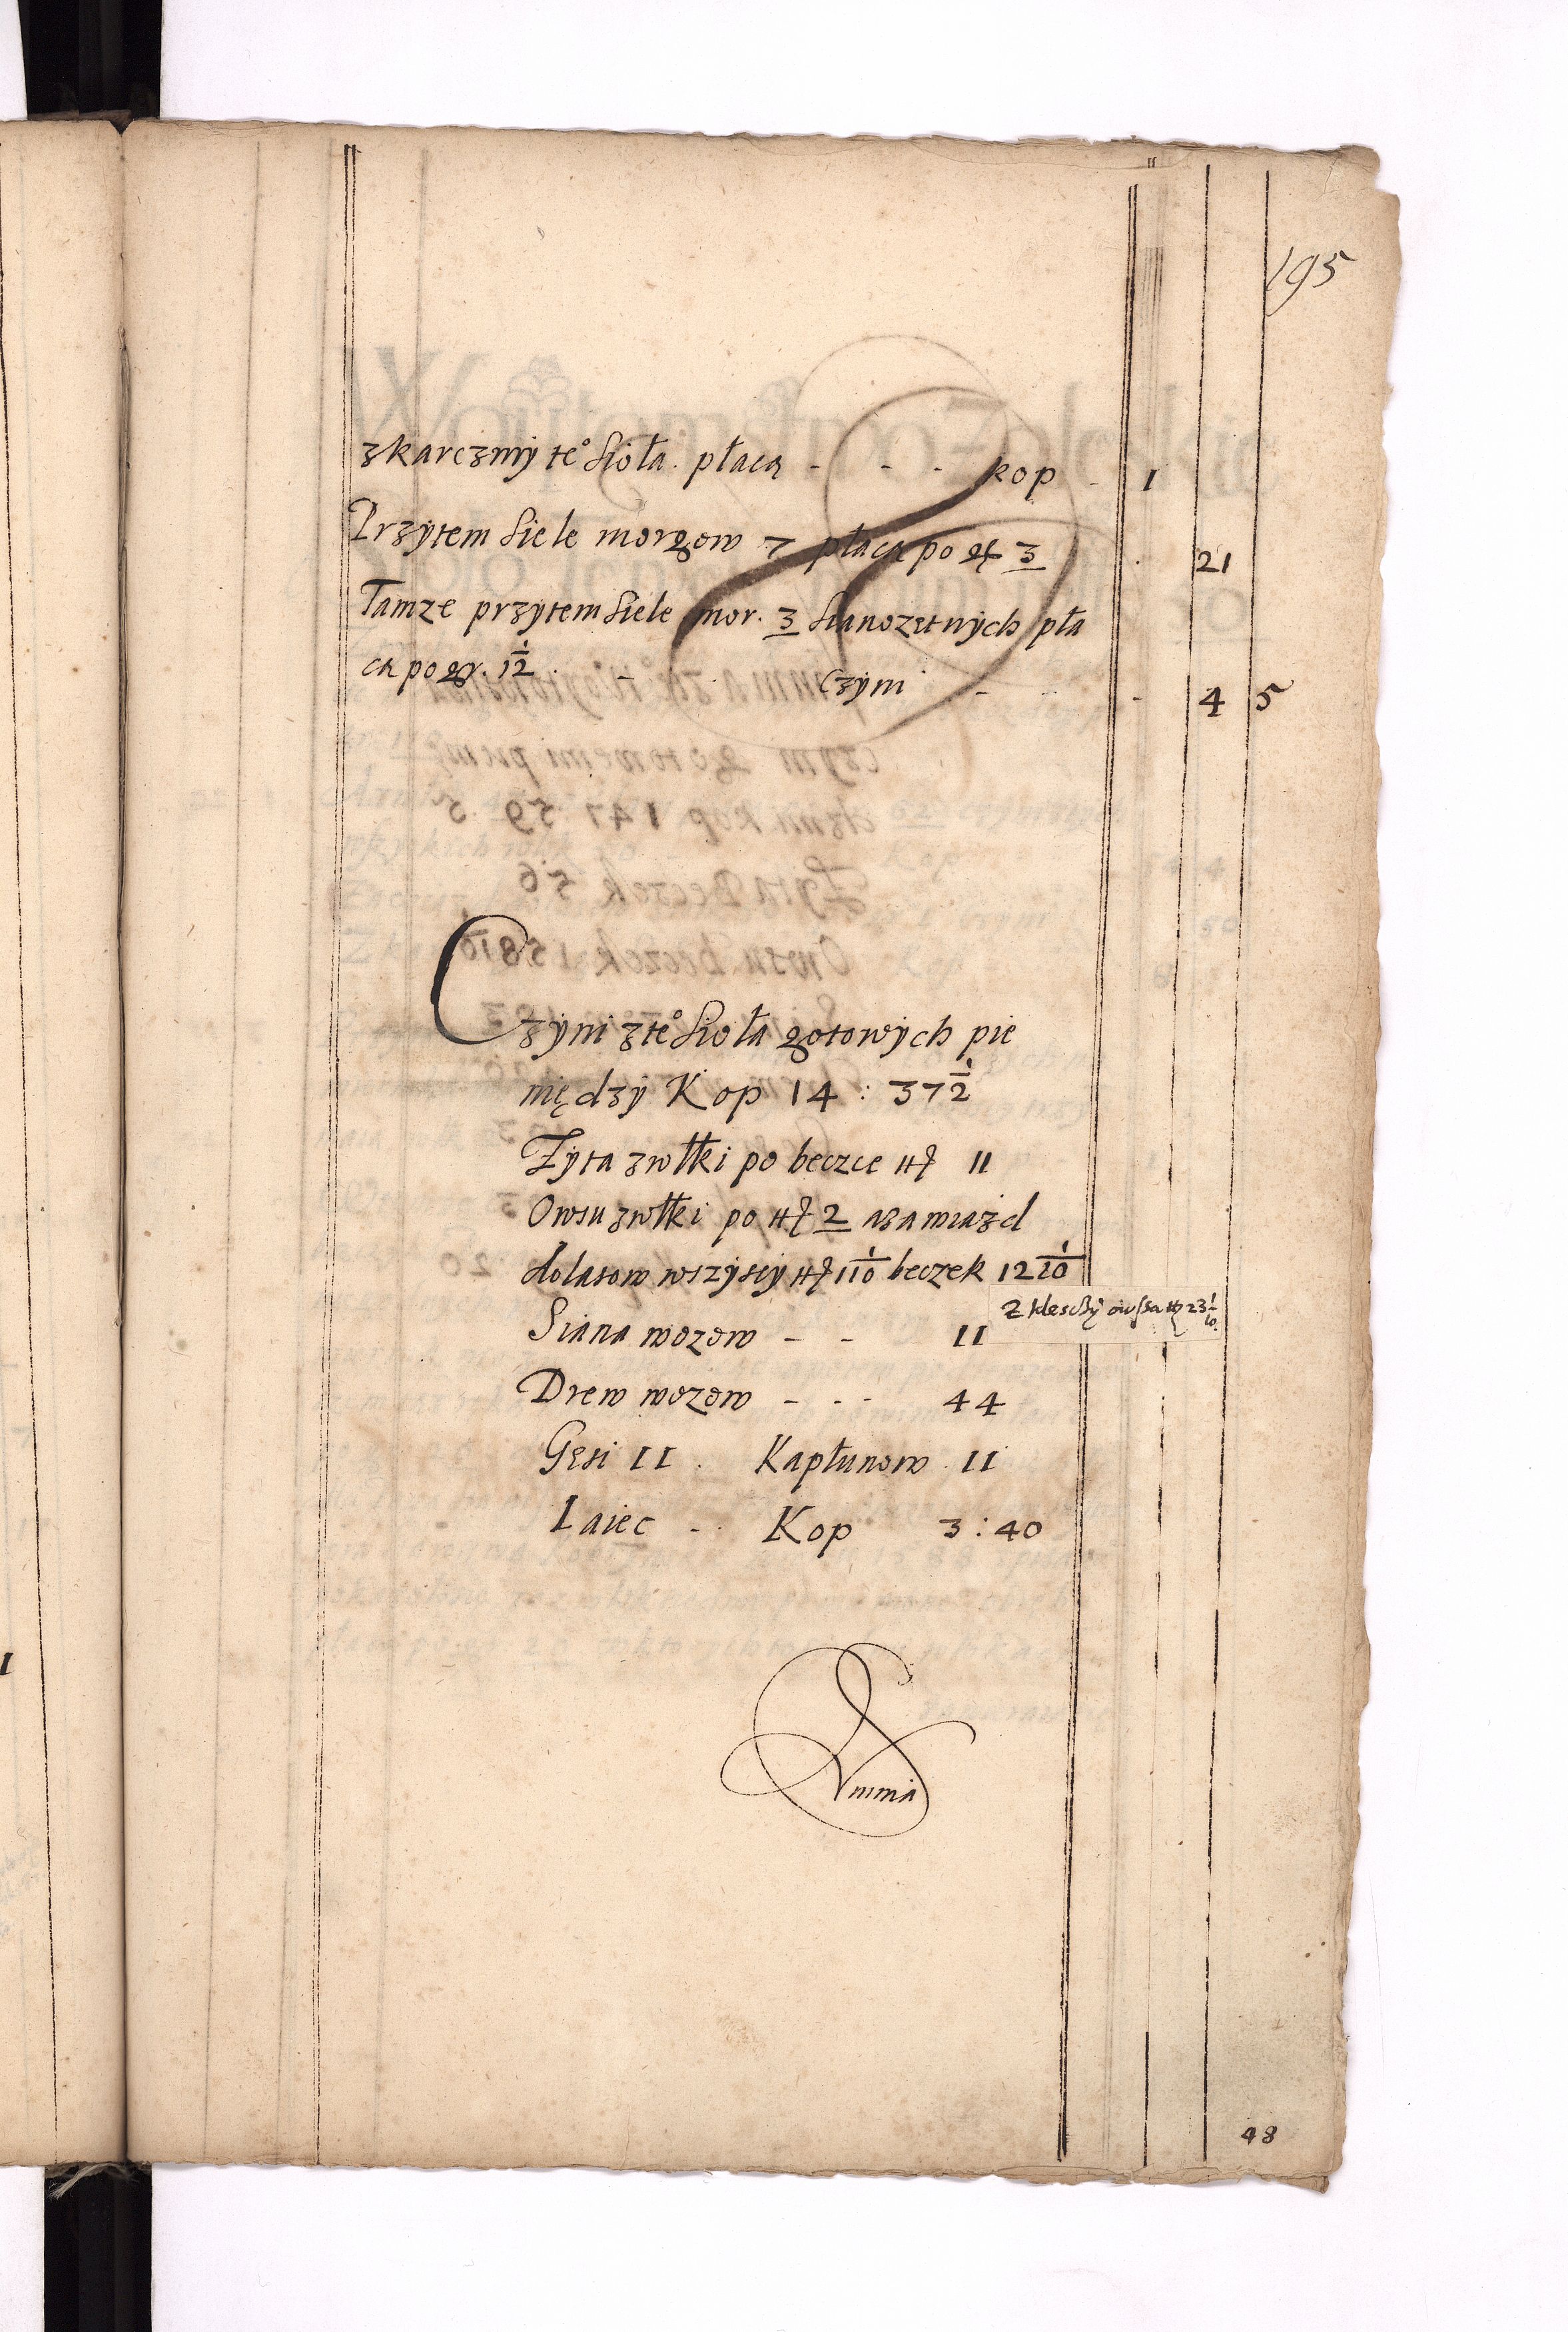 195
zkarczmy te° Sioła płacą - - - kop - 1
Przytem Siele morgow 7 płacą po gr 3 21
Tamze przytem Siele mor. 3 Sianozętnych pła
cą po gr. 1 1/2 - czyni - - 4 5
Czyni z te° Sioła gotowych pie
niędzy Kop 14 : 37 1/2
Zyta zwłki po beczce 11
Owsu zwłki po 2 aza wiazd
dolasow wszyscy 11 1/0 beczek 12 1/10
Z kleschy owssa 23 1/10
Siana wozow - - 11
Drew wozow - - - 44
Gęsi 11 . Kapłunow 11
Iaiec - . Kop 3 : 40
Summa
48